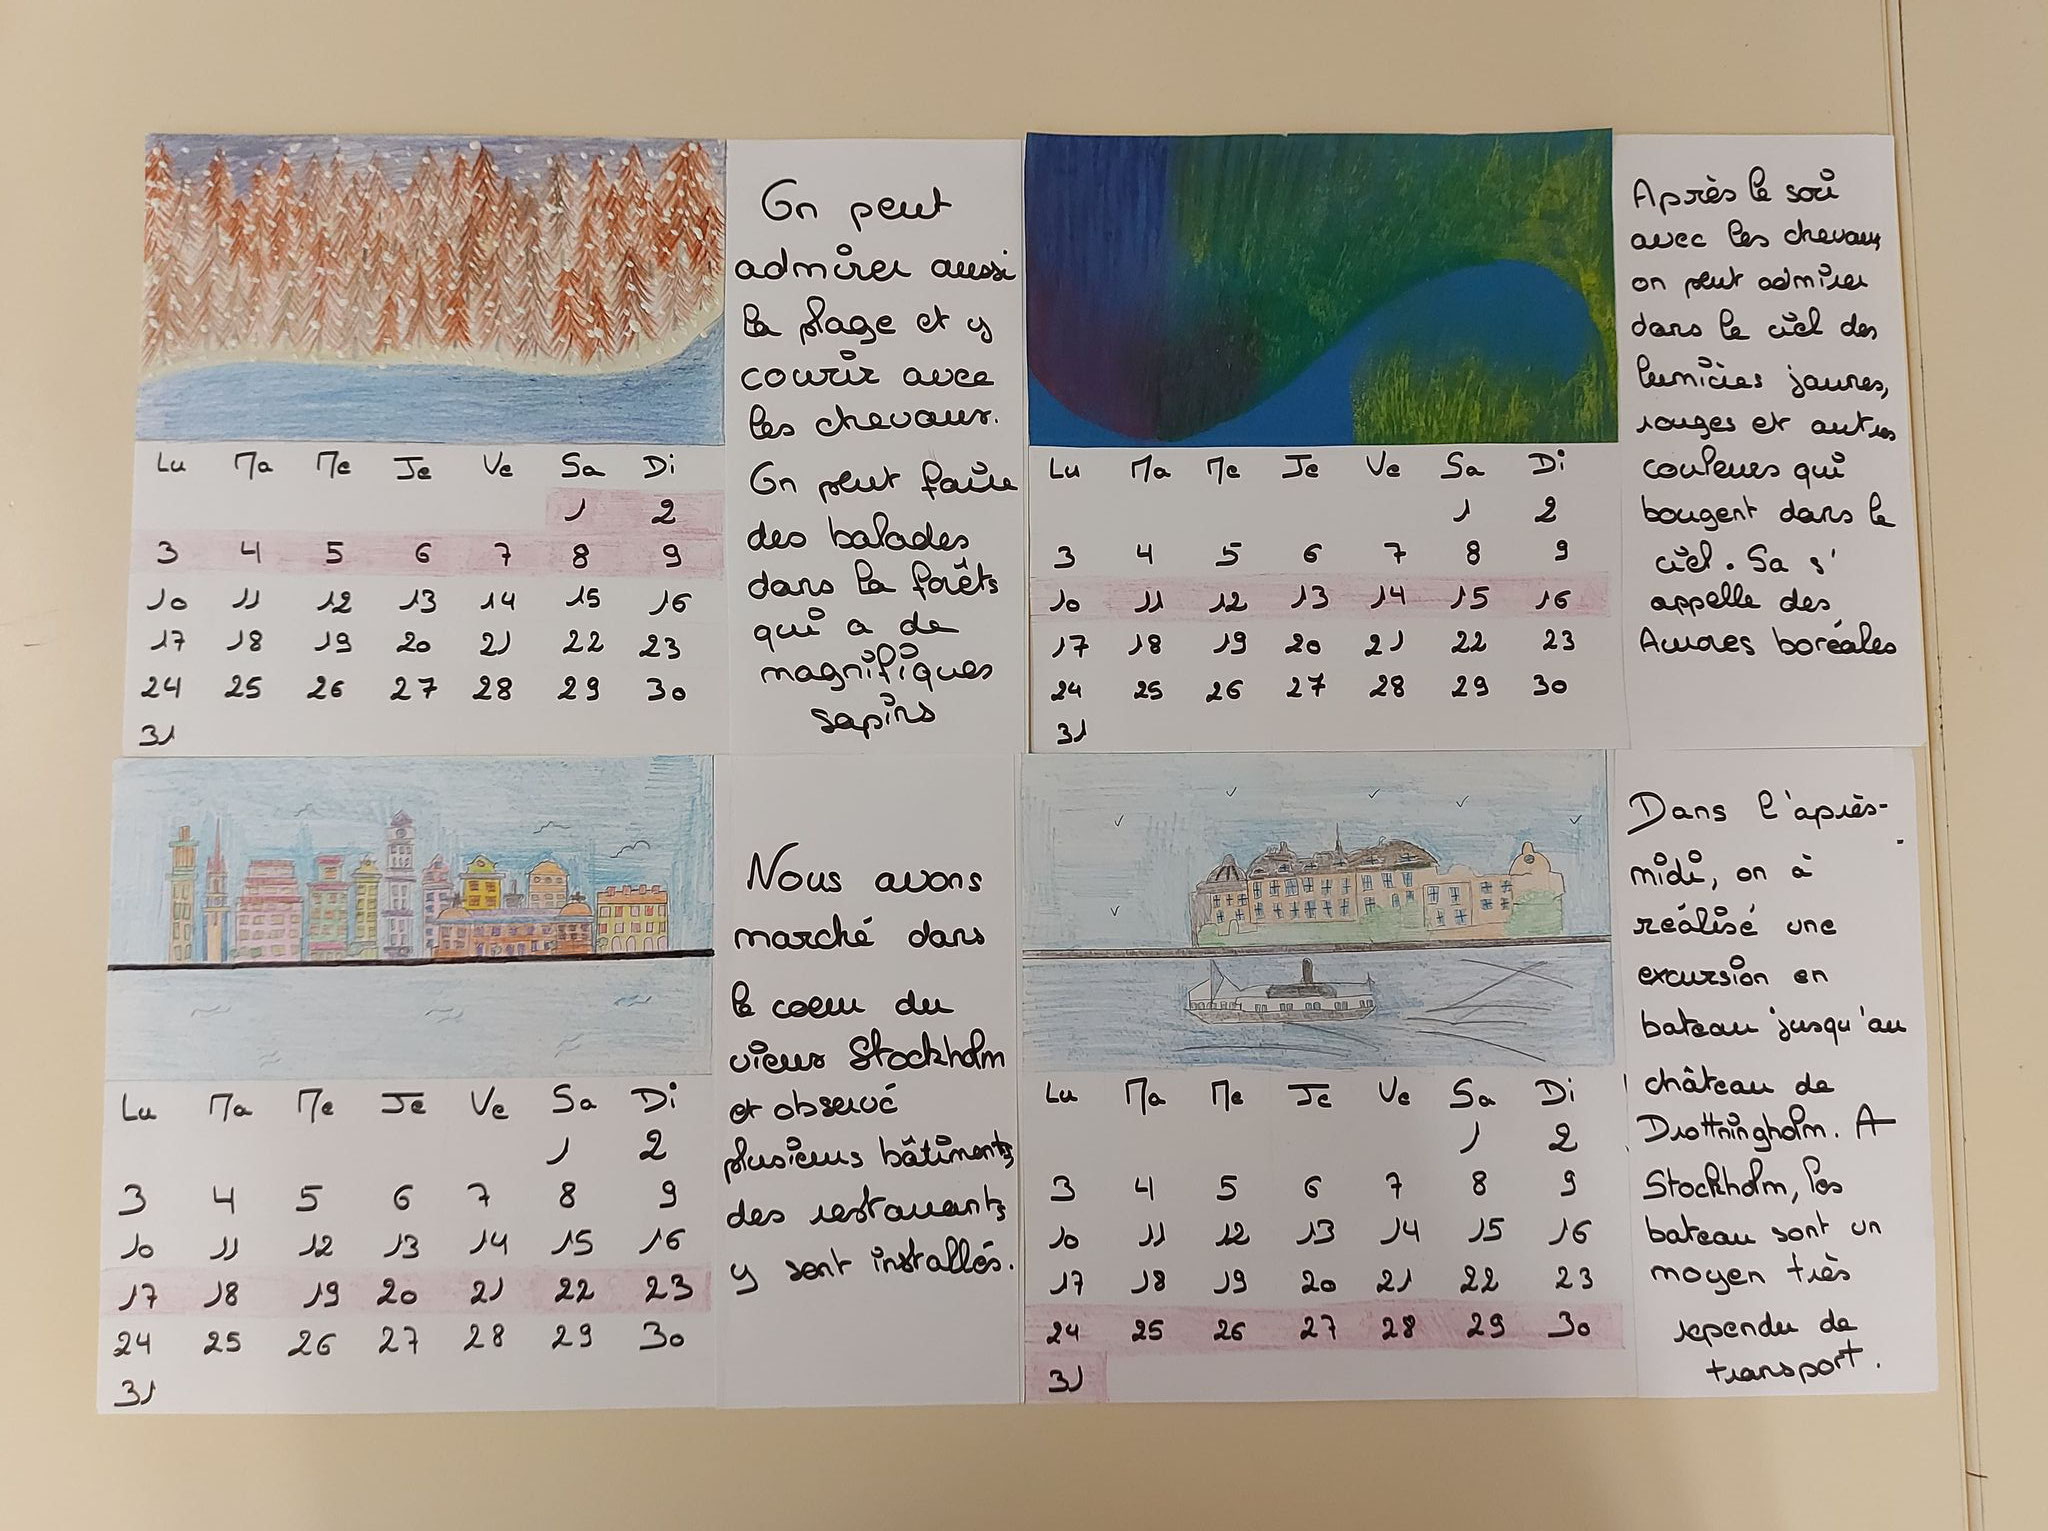 Lu Ma Me Je Ve Sa Di
1 2
3 4 5 6 7 8 9
10 11 12 13 14 15 16
17 18 19 20 21 22 23
24 25 26 27 28 29 30
31
On peut
admirer aussi
la plage et y
courir avec
les chevaux.
On peut faire
des balades
dans la forêts
qui a de
magnifiques
sapins
Lu Ma Me Je Ve Sa Di
1 2
3 4 5 6 7 8 9
10 11 12 13 14 15 16
17 18 19 20 21 22 23
24 25 26 27 28 29 30
31
Après le soir
avec les chevaux
on peut admirer
dans le ciel des
lumières jaunes,
rouges et autres
couleurs qui
bougent dans le
ciel. Sa s'
appelle des
Aurores boréales
Lu Ma Me Je Ve Sa Di
1 2
3 4 5 6 7 8 9
10 11 12 13 14 15 16
17 18 19 20 21 22 23
24 25 26 27 28 29 30
31
Nous avons
marché dans
le coeur du
vieux Stockholm
et observé
plusieurs bâtiments,
des restaurants
y sont installés.
Lu Ma Me Je Ve Sa Di
1 2
3 4 5 6 7 8 9
10 11 12 13 14 15 16
17 18 19 20 21 22 23
24 25 26 27 28 29 30
31
Dans l'après-
midi, on à
réalisé une
excursion en
bateau jusqu'au
château de
Drottningholm. A
Stockholm, les
bateau sont un
moyen très
rependu de
transport.